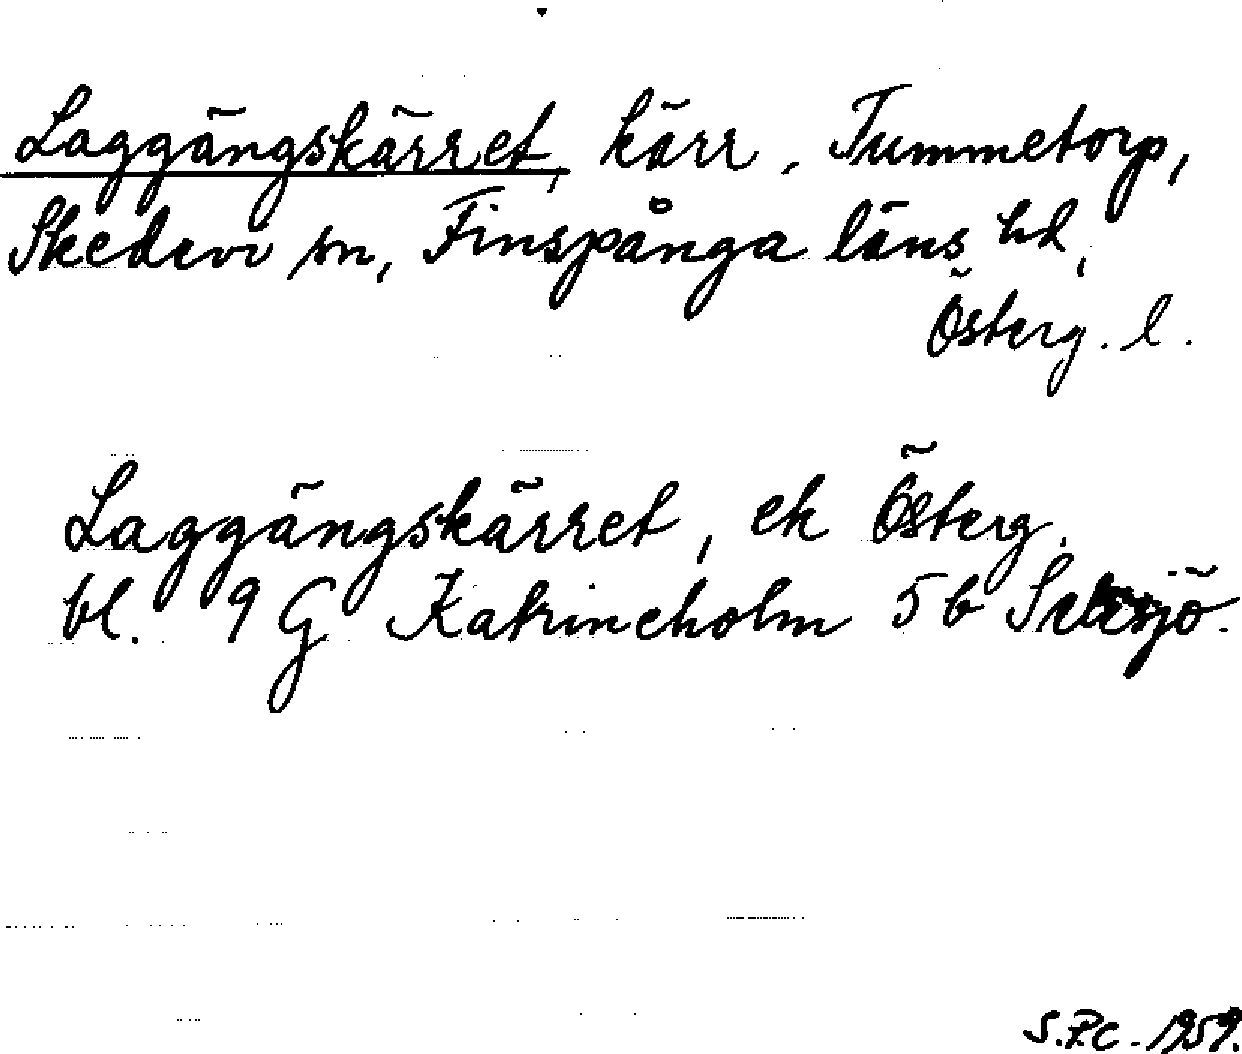 Laggängskärret, kärr, Tummetorp,
Skedevi sn, Finspånga läns hd,
Österg. l.
Laggängskärret, ek Österg.
bl. 9 G Katrineholm 5 b
S.P.C. 1959.